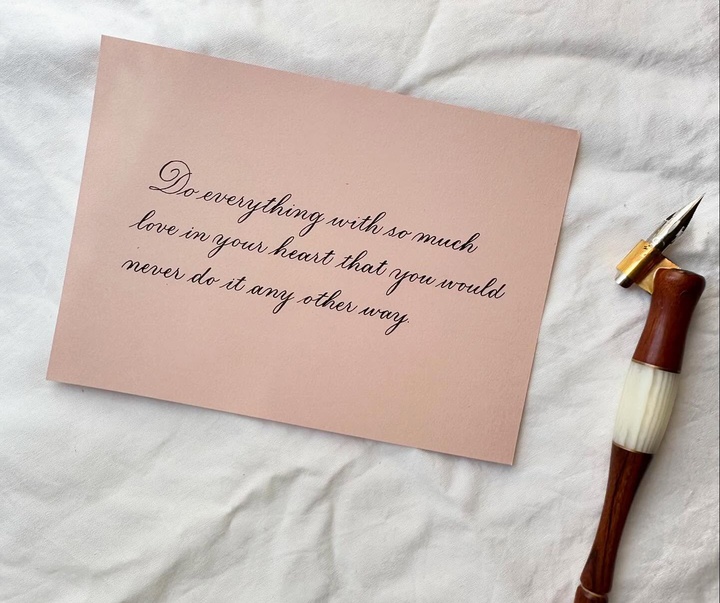 Do everything with so much
love in your heart that you would
never do it any other way.